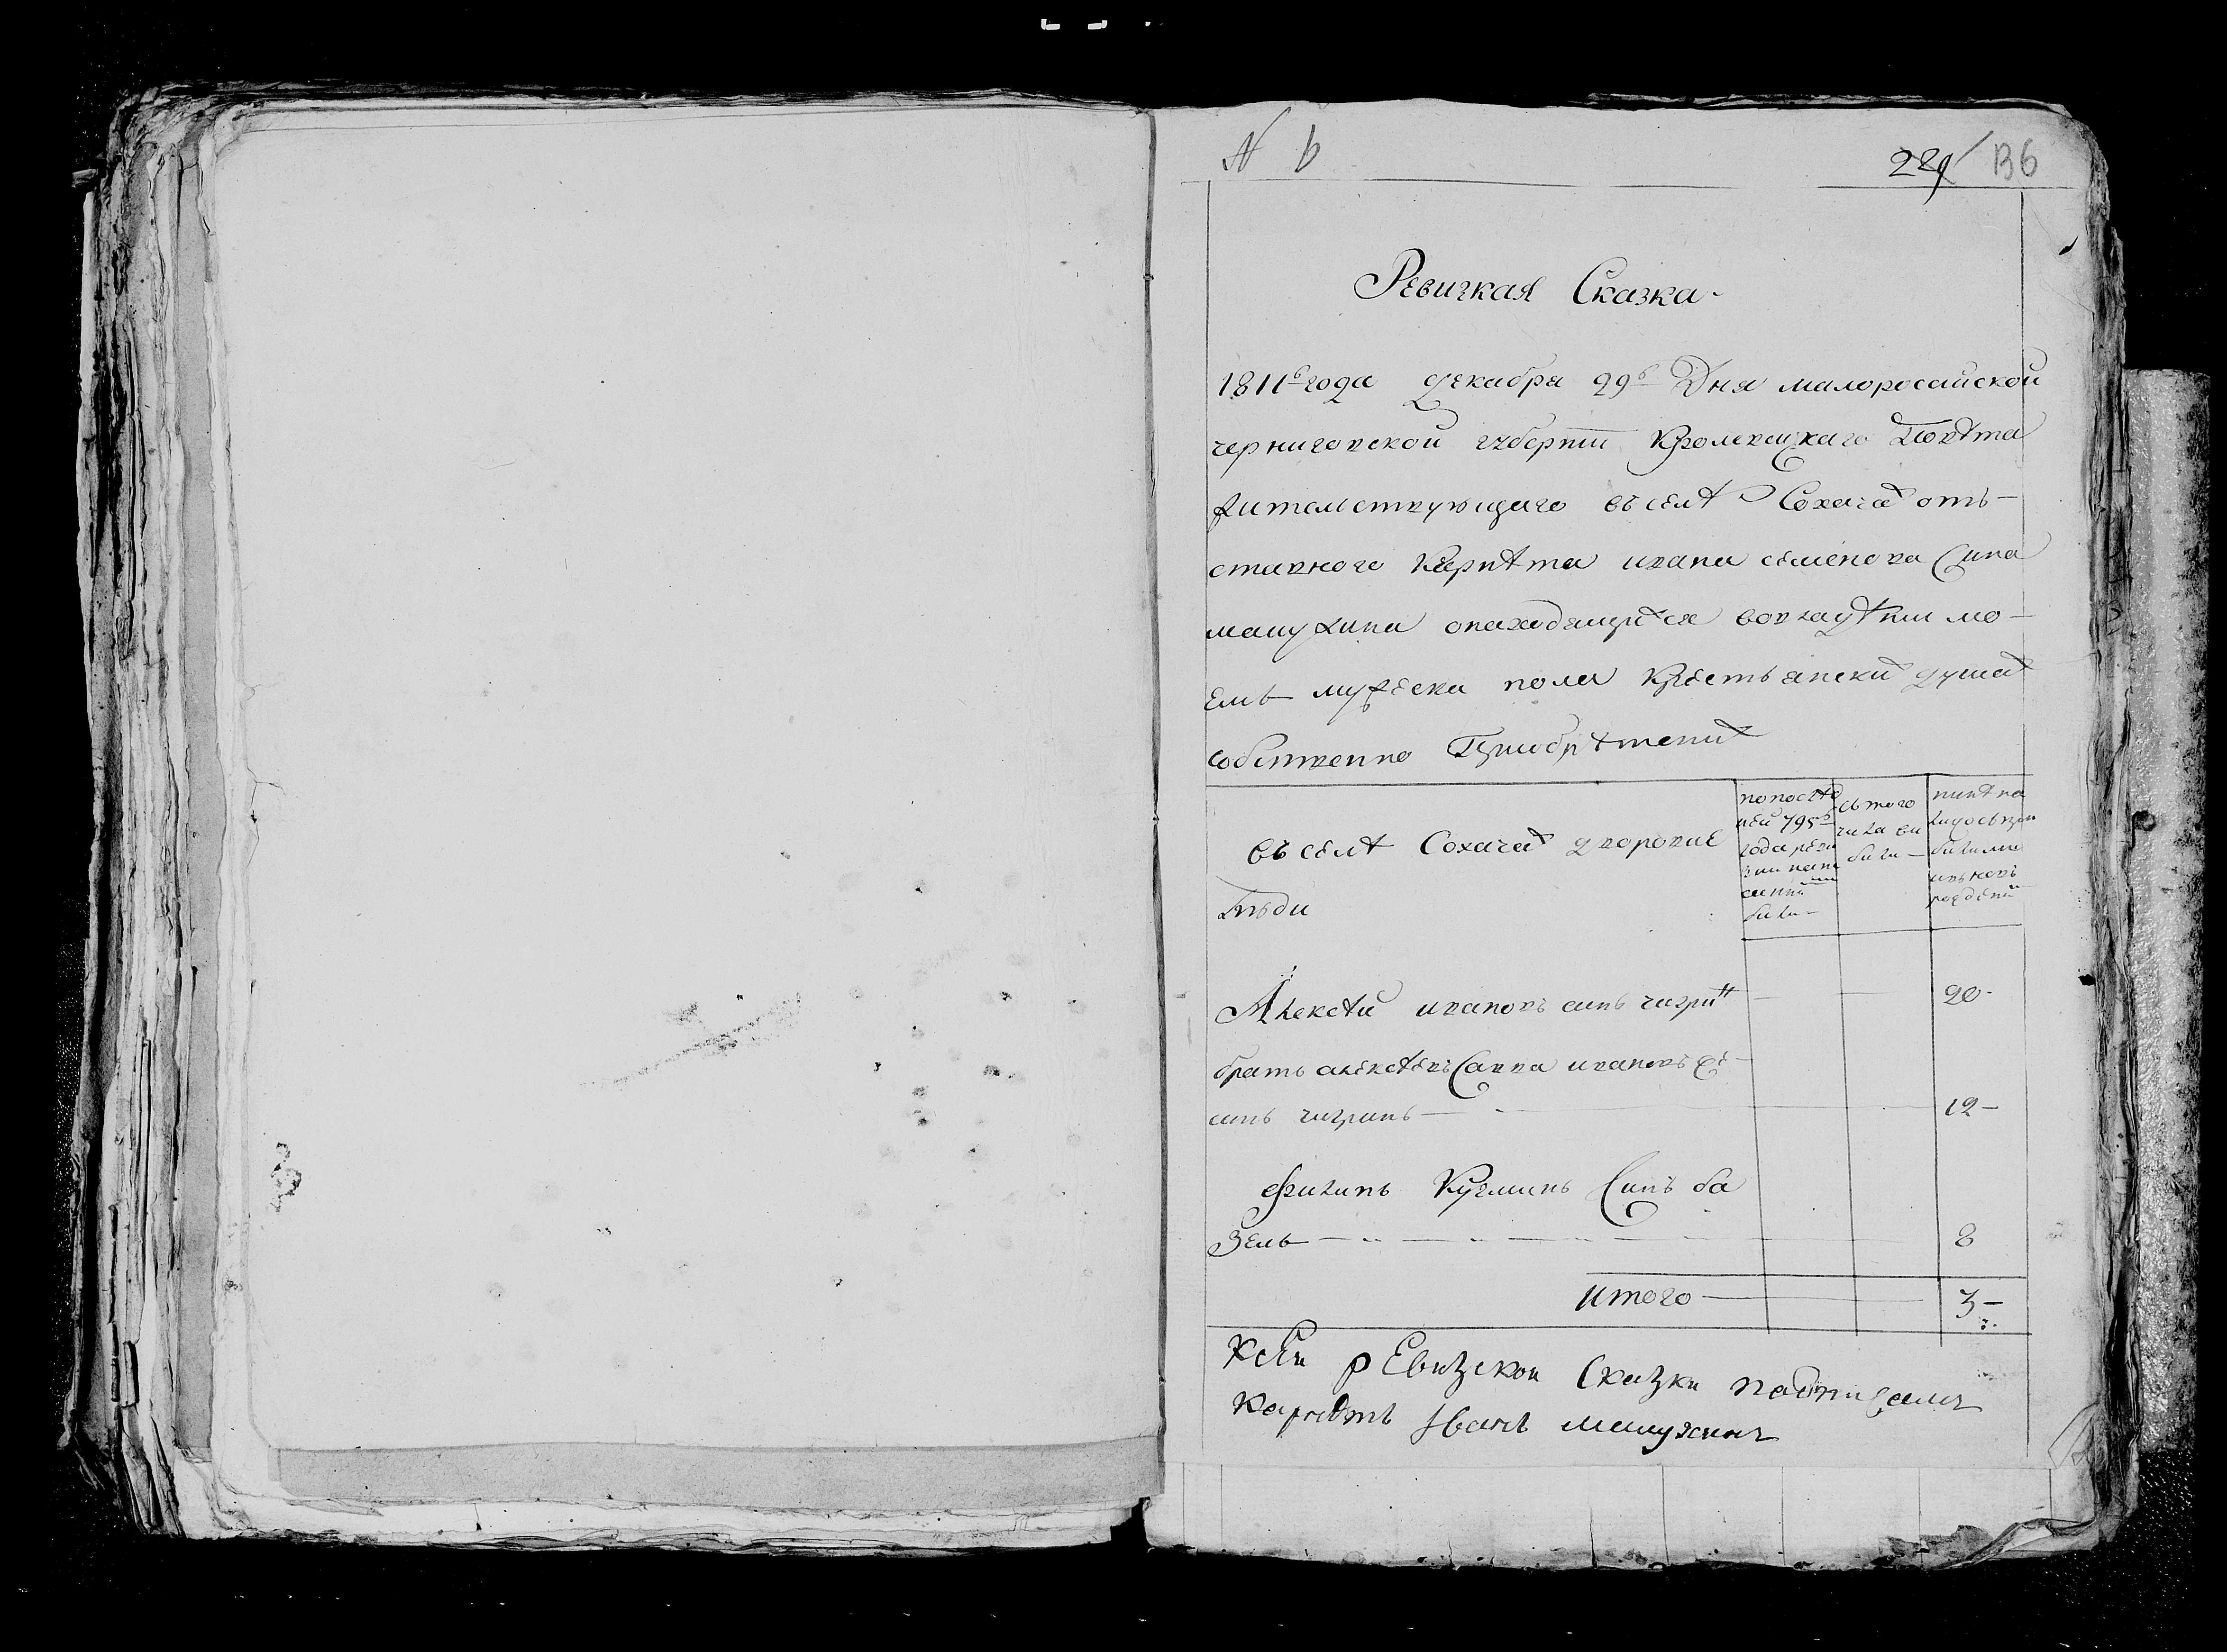 N 6
229 136
Ревизкая Сказка
1811го года декабря 29го Дня малоросийской
черниговской губернии Кролевецкаго Повѣта
жительствующаго въ селѣ Сохачах отъ-
ставного Карнѣта ивана семенова Сина
машукина о находящихся во владѣнии мо-
емъ мужеска пола Крестьянских душах
собственно Приобрѣтених
въ селѣ Сохачах дворовие
Люди
по послѣд
ней 795го
года реви
зии напи
санни
били
съ того
числа ви
били
нинѣ на
лицо съ при
билими
и вновъ
рожденни
Алексѣй ивановъ синъ чигрин
20
братъ алексѣевъ Савва ивановъ же
синъ чигринъ
12
Филипъ Кузминъ Синъ ба
зель
8
итого
3
К сей рЕвизской Сказки подписался
Карнѣтъ Иванъ машукинъ